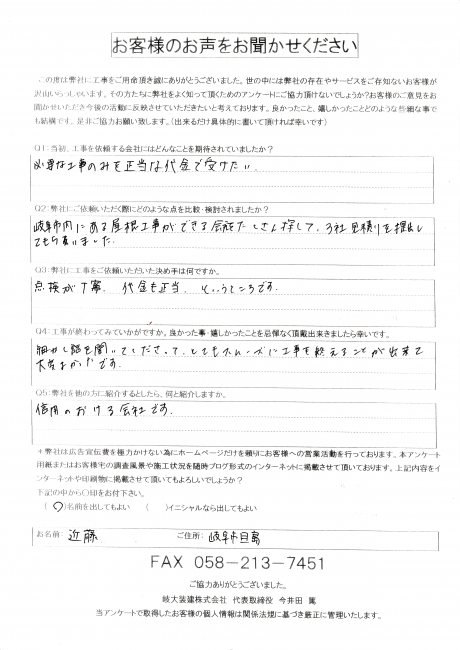 お客様のお声をお聞かせください
この度は弊社に工事をご用命頂き誠にありがとうございました。世の中には弊社の存在やサービスをご存知ないお客様が
沢山いらっしゃいます。その方たちに弊社をよく知って頂くためのアンケートにご協力頂けないでしょうか?お客様のご意見をお
聞かせいただき今後の活動に反映させていただきたいと考えております。良かったこと、嬉しかったことどのような些細な事で
も結構です。是非ご協力お願い致します。(出来るだけ具体的に書いて頂ければ幸いです)
Q1:当初、工事を依頼する会社にはどんなことを期待されていましたか?
必要な工事のみを正当な代金で受けたい.
Q2:弊社にご依頼いただく際にどのような点を比較・検討されましたか?
岐阜市内にある屋根工事ができる会社をたくさん探して、3社見積りを提出し
てもらいました.
Q3:弊社に工事をご依頼いただいた決め手は何ですか。
点検が丁寧、代金も正当、というところです.
Q4:工事が終わってみていかがですか。良かった事・嬉しかったことを忌憚なく頂戴出来ましたら幸いです。
細かい話を聞いてくださって、とてもスムーズに工事を終えることが出来て
大変よかったです.
Q5:弊社を他の方に紹介するとしたら、何と紹介しますか。
信用のおける会社です.
＊弊社は広告宣伝費を極力かけない為にホームページだけを頼りにお客様への営業活動を行っております。本アンケート
用紙またはお客様宅の調査風景や施工状況を随時ブログ形式のインターネットに掲載させて頂いております。上記内容をイ
ンターネットや印刷物に掲載させて頂いてもよろしいでしょうか?
下記の中から○印をお付下さい。
(○)名前を出してもよい ( )イニシャルなら出してもよい
お名前: 近藤 ご住所: 岐阜市目島
FAX 058-213-7451
ご協力ありがとうございました。
岐大装建株式会社 代表取締役 今井田 篤
当アンケートで取得したお客様の個人情報は関係法規に基づき厳正に管理いたします。